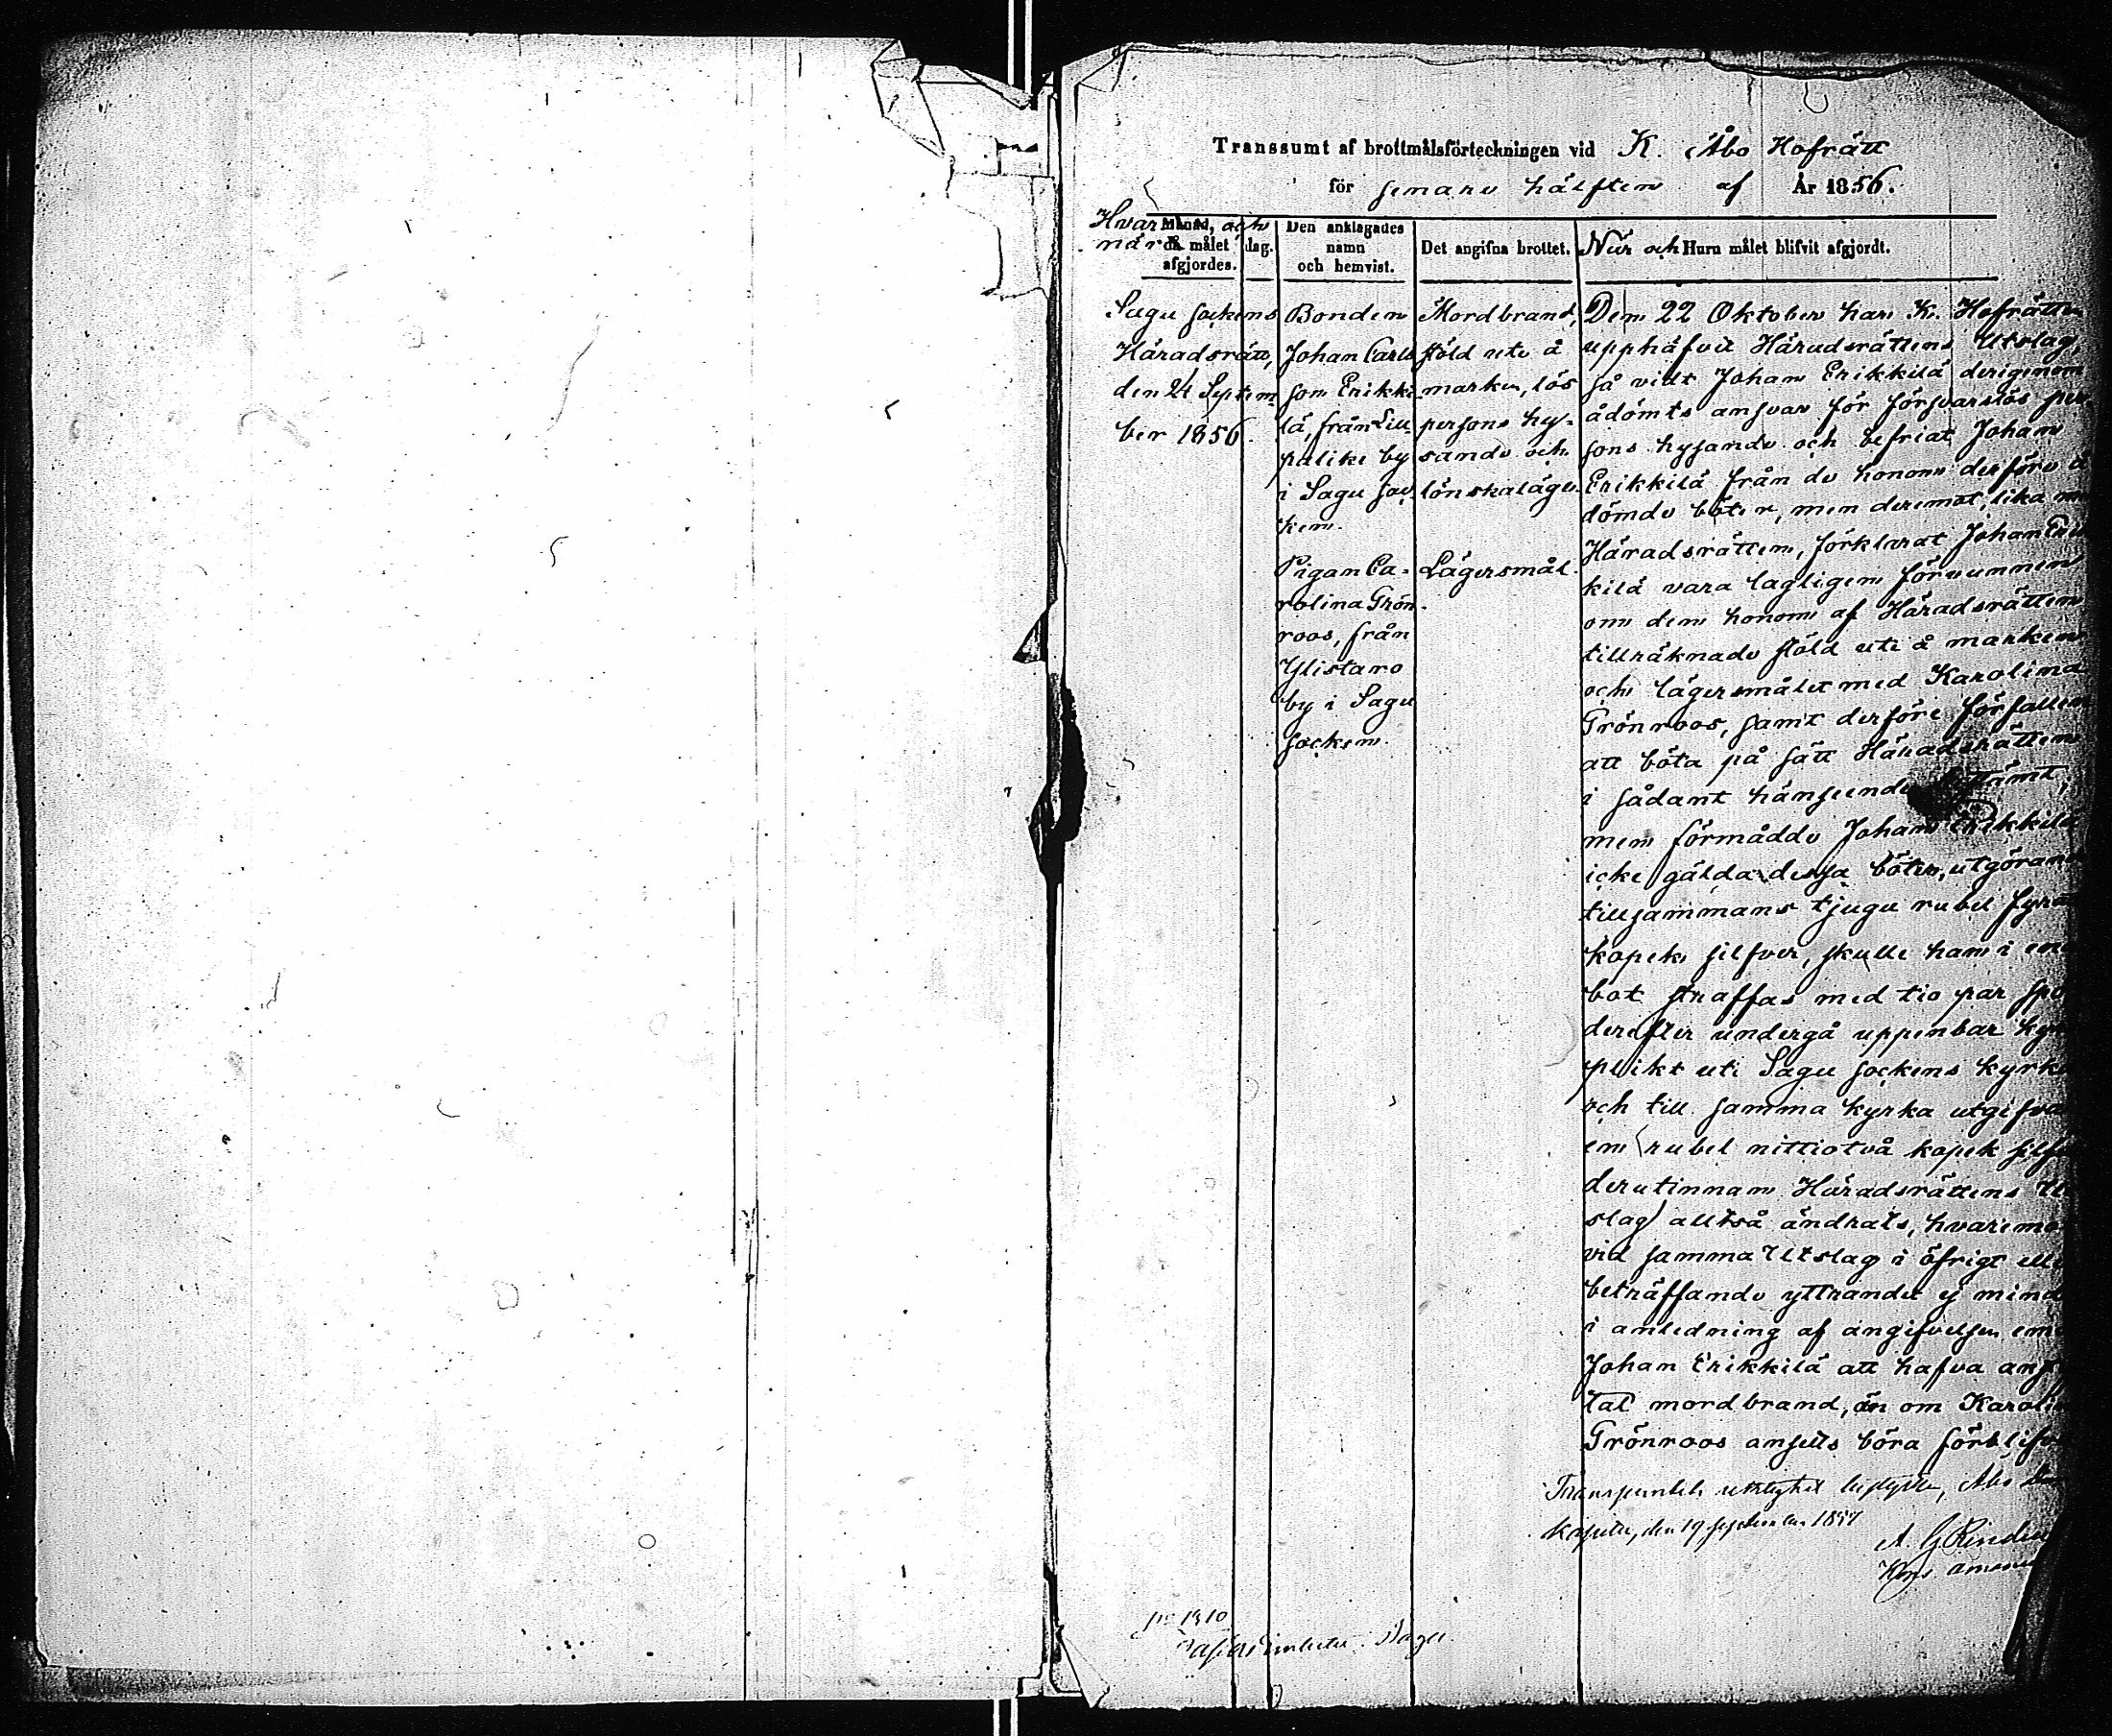 Transsumt af brottmålsförteckningen vid K. Åbo Hofrätt
för senare hälften af År 1856.
Hvar och när målet afgjordes.
Sagu sockens
Häradsrätt,
den 24 Septem-
ber 1856.
dag.
Den anklagades
namn
och hemvist.
Bonden
Johan Carls
son Erikki-
lä, från Lill-
palike by
i Sagu soc
ken.
Pigan Ca-
rolina Grön-
roos, från
Ylistaro
by i Sagu
socken.
Det angifna brottet.
Mordbrand,
stöld ute å
marken, lös
persons hy-
sande och
lönskaläge.
Lägersmål.
När och Huru målet blifvit afgjordt.
Den 22 Oktober har K. Hofrätten
upphäfvit Häradsrättens Utslag
så vidt Johan Erikkilä derigenom
ådömts ansvar för försvarslös per-
sons hysande och befriat Johan
Erikkilä från de honom derföre å
dömde böter, men deremot, lika
Häradsrätten, förklarat Johan Erik
kilä vara lagligen förvunnen
om den honom af Häradsrätten
tillräknade stöld ute å marken
och lägersmålet med Karolina
Grönroos, samt derföre förfallen
att böta på sätt Häradsrätten
i sådant hänseende bestämt,
men förmådde Johan Erikkilä
icke gälda dessa böter, utgörande
tillsammans tjugu rubel fyratio
kopek silfver, skulle han i
bot straffas med tio par spö
derefter undergå uppenbar kyrko
plikt uti Sagu sockens kyrka
och till samma kyrka utgifva
en rubel nittiotvå kopek silfver
derutinnan Häradsrättens Ut
slag alltså ändrats, hvaremot
vid samma Utslag i öfrigt
beträffande yttrandet ej mindre
i anledning af angifvelsen emot
Johan Erikkilä att hafva
mordbrand, än om Karolina
Grönroos ansetts böra förblifva
Transsumtets riktighet Åbo
den 19 September 1857
A. G.